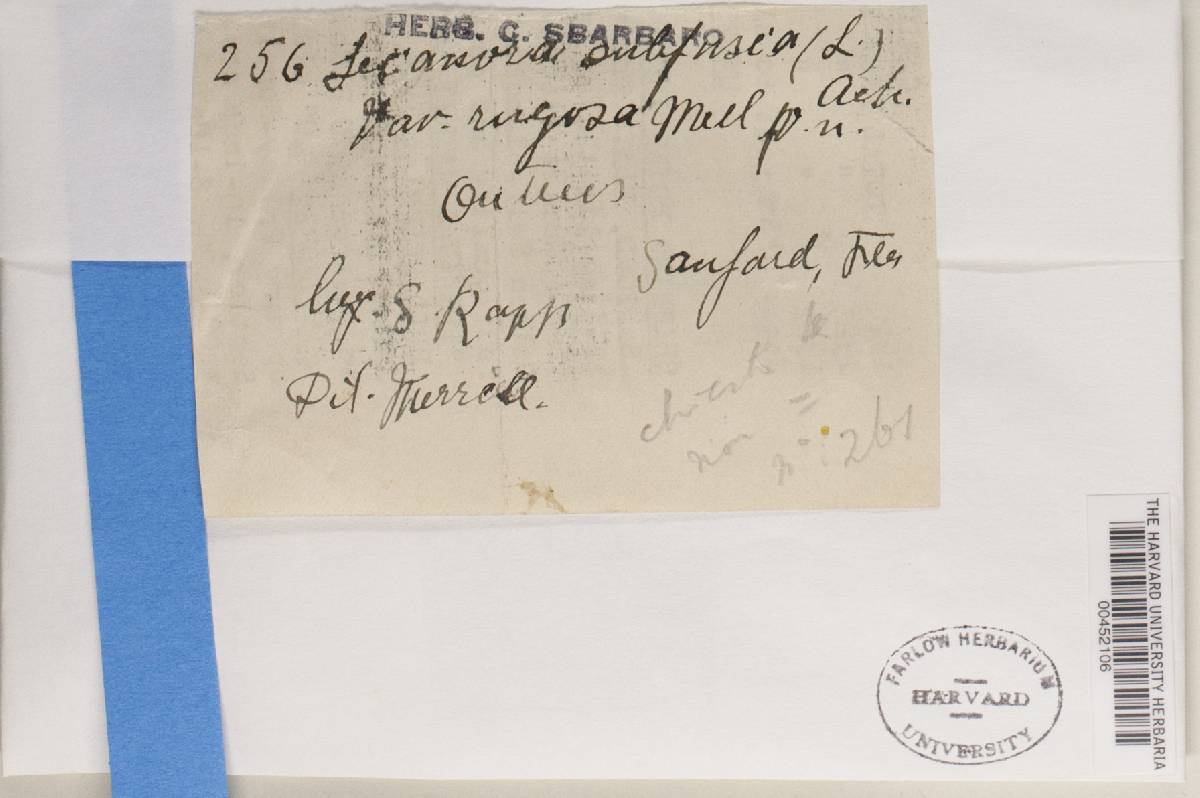 HERB. C. SBARBARO
256 Lecanora subfusca (L.) Ach.
Var. rugosa Mell p. n.
On trees
Sanford, Fla
Lgx. S Rapp
Dit. Merrill.
non
n°: 261
THE HARVARD UNIVERSITY HERBARIA
00452106
FARLOW HERBARIUM
HARVARD
UNIVERSITY